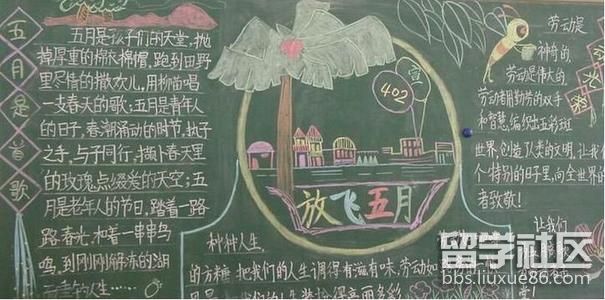 五月是首歌
五月是孩子们的天堂,抛
掉厚重的棉袄棉帽,跑到田野
里尽情的撒欢儿,用柳笛唱
一支春天的歌;五月是青年人
的日子,春潮涌动的时节,执子
之手,与子同行,撷下春天里
的玫瑰,点缀爱的天空;五
月是老年人的节日,踏着一路
路春光,和着一串串鸟
鸣,到刚刚解冻的湖
人生
爱
402
放飞五月
种种人生,
的方糖把我们的人生调得有滋有味,劳动如
劳动是
神奇的,
劳动是伟大的,
劳动者用勤劳的双手
和智慧,编织出五彩斑
世界,创造了人类的文明,让我
个特别的日子里,向全世界的
者致敬!
让我们
留学社区
bbs.liuxue86.com